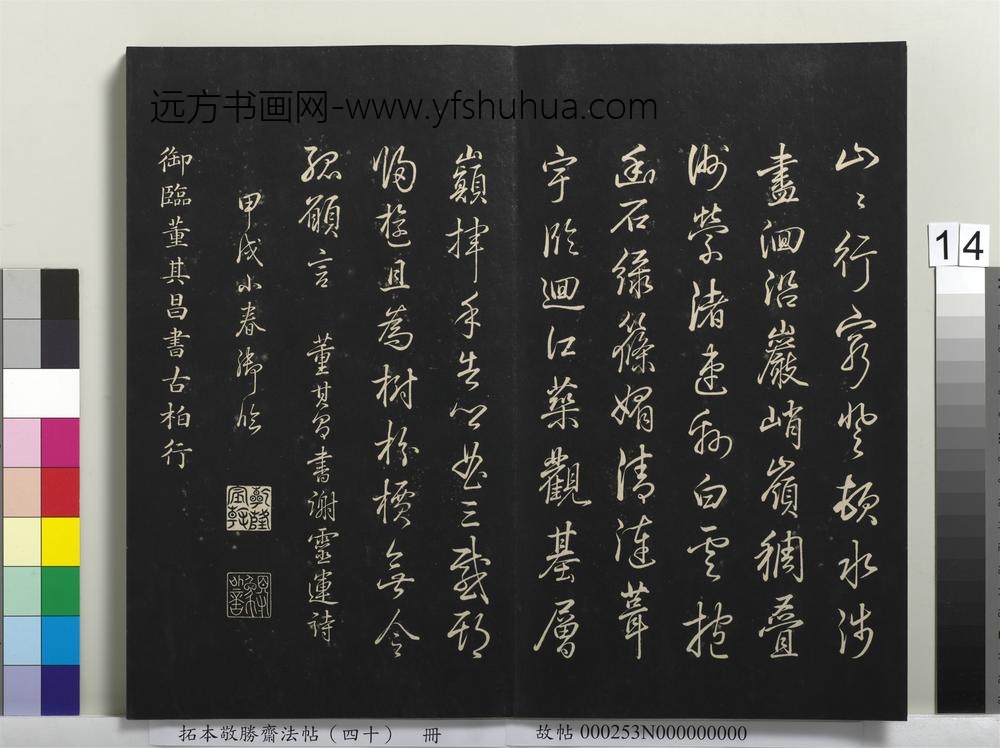 远方书画网-www.yfshuhua.com
山〻行窮登頓水涉
盡洄沿巖峭嶺稠疊
洲縈渚連綿白雲抱
幽石綠篠媚清漣葺
宇臨迴江築觀基層
巔揮手告鄉曲三載期
歸旋且為樹枌檟無令
孤願言 董其昌書謝靈運詩
甲戌小春御臨
乾隆宸翰
御臨董其昌書古柏行
14
拓本敬勝齋法帖（四十） 冊 故帖 000253N000000000